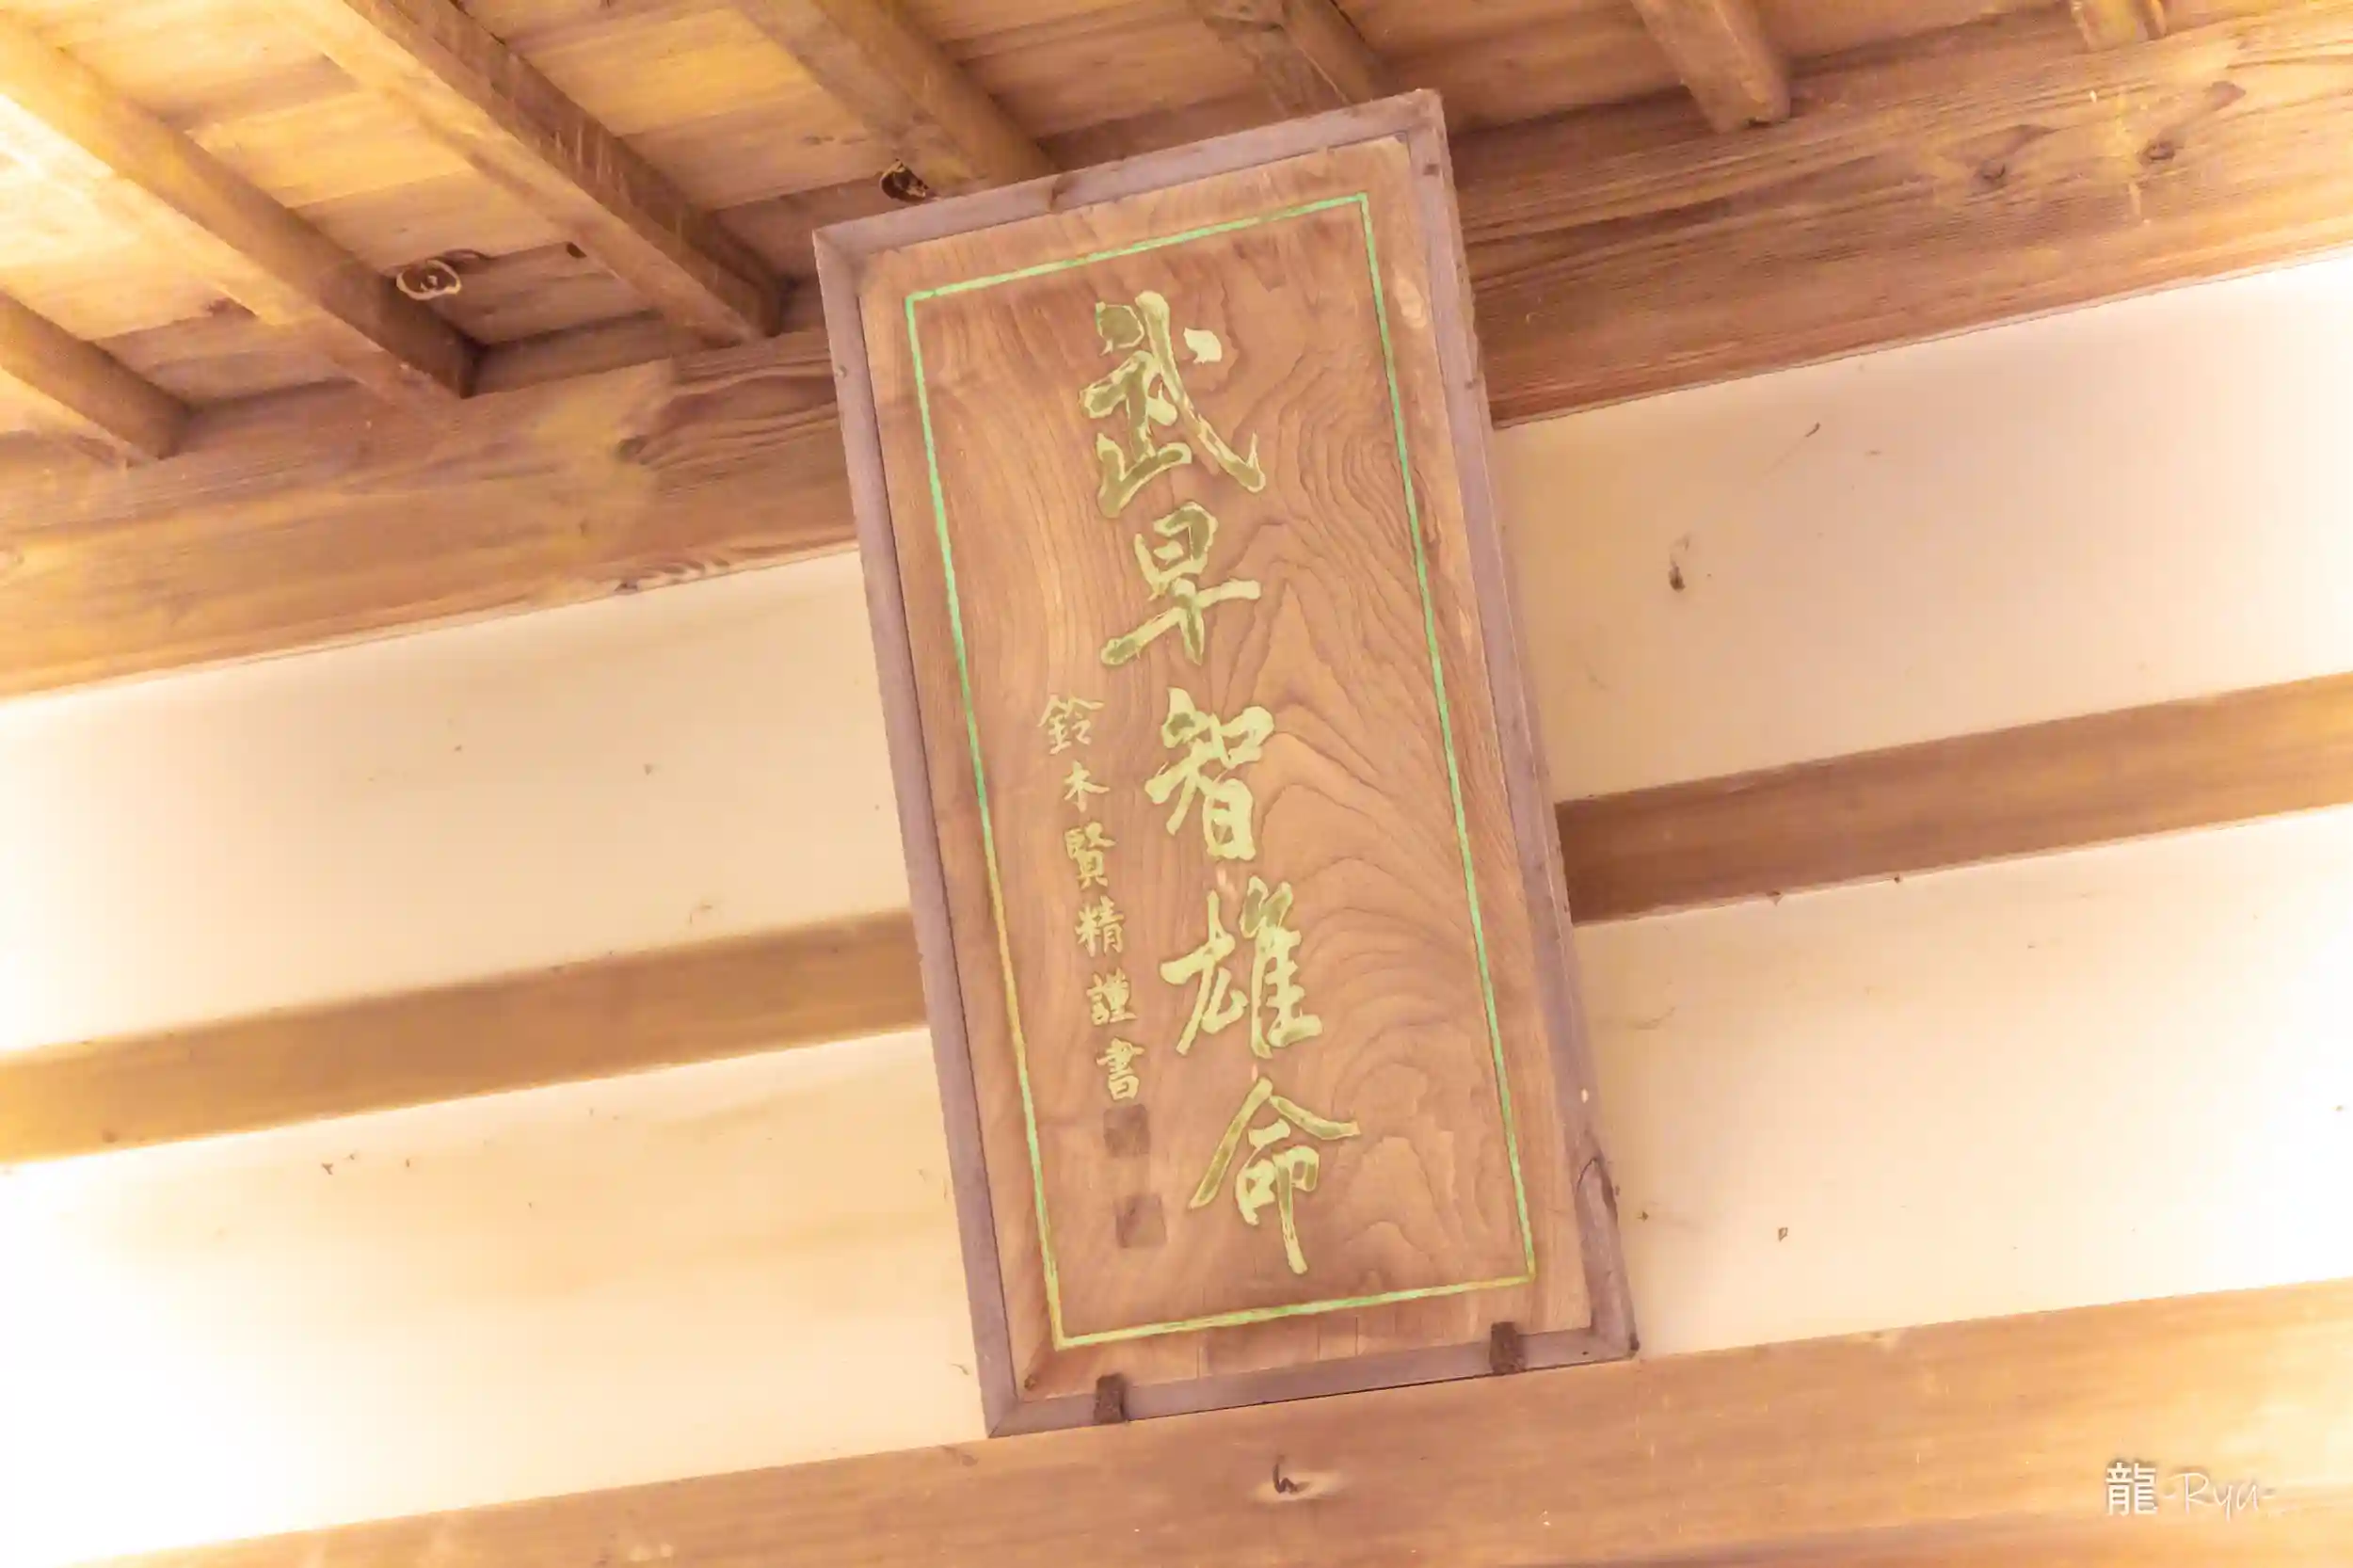 武早智雄命
鈴木賢精謹書
龍-Ryu-